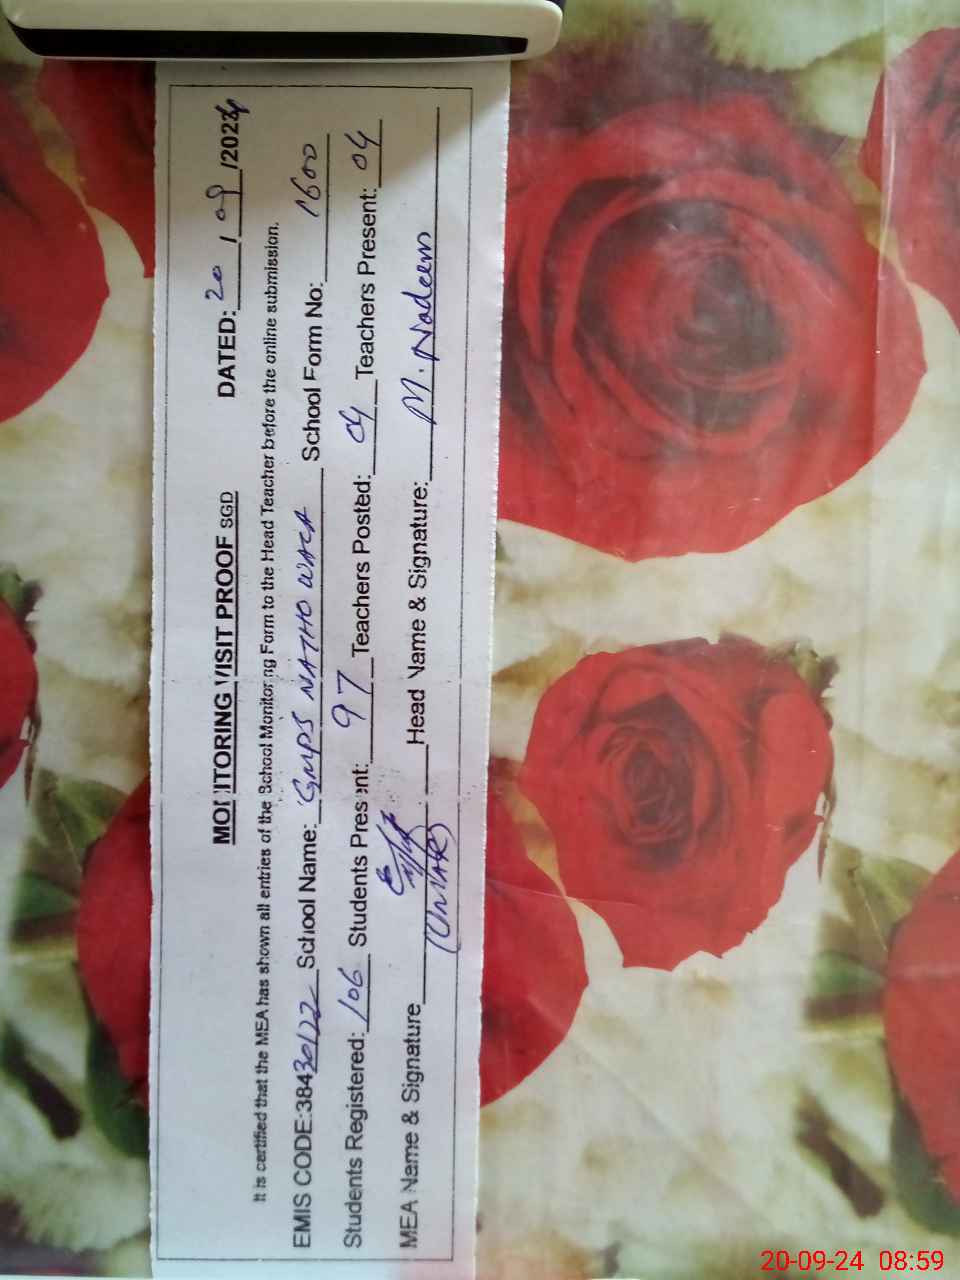 MONITORING VISIT PROOF SGD DATED: 20 / 09 /2024
It is certified that the MEA has shown all entries of the School Monitoring Form to the Head Teacher before the online submission.
EMIS CODE:38430122 School Name: GMPS NATHO WALA School Form No: 1600
Students Registered: 106 Students Present: 97 Teachers Posted: 04 Teachers Present: 04
MEA Name & Signature (UMAR) Head Name & Signature: M. Nadeem
20-09-24 08:59